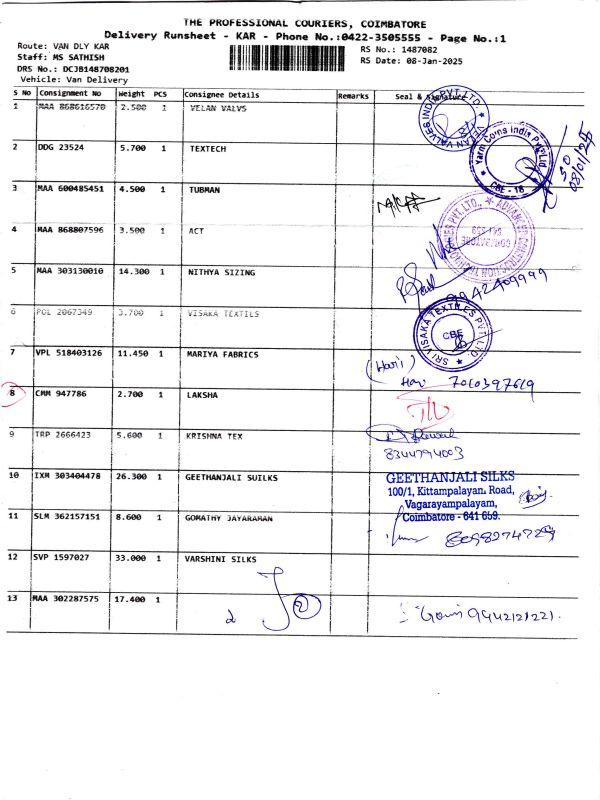 THE PROFESSIONAL COURIERS, COIMBATORE
Delivery Runsheet - KAR - Phone No.:0422-3505555 - Page No.:1
Route: VAN DLY KAR
RS No.: 1487082
Staff: MS SATHISH
RS Date: 08-Jan-2025
DRS No.: DCJB148708201
Vehicle: Van Delivery
S No Consignment No Weight PCS Consignee Details Remarks Seal & Signature
1 MAA 868616570 2.500 1 VELAN VALVS
2 DDG 23524 5.700 1 TEXTECH
Yarn Corns India Pvt Ltd
CBE - 18
08/01/25
3 MAA 600485451 4.500 1 TUBMAN
4 MAA 868807596 3.500 1 ACT
5 MAA 303130010 14.300 1 NITHYA SIZING
9942409999
6 POL 2067349 3.700 1 VISAKA TEXTILS
SRI VISAKA TEXTILES PVT. LTD.
CBE
7 VPL 518403126 11.450 1 MARIYA FABRICS
(Hari)
8 CMM 947786 2.700 1 LAKSHA
9 TRP 2666423 5.600 1 KRISHNA TEX
8344794003
10 IXM 303404478 26.300 1 GEETHANJALI SUILKS
GEETHANJALI SILKS
100/1, Kittampalayan. Road,
Vagarayampalayam,
Coimbatore - 641 659.
11 SLM 362157151 8.600 1 GOMATHY JAYARAMAN
12 SVP 1597027 33.000 1 VARSHINI SILKS
13 MAA 302287575 17.400 1